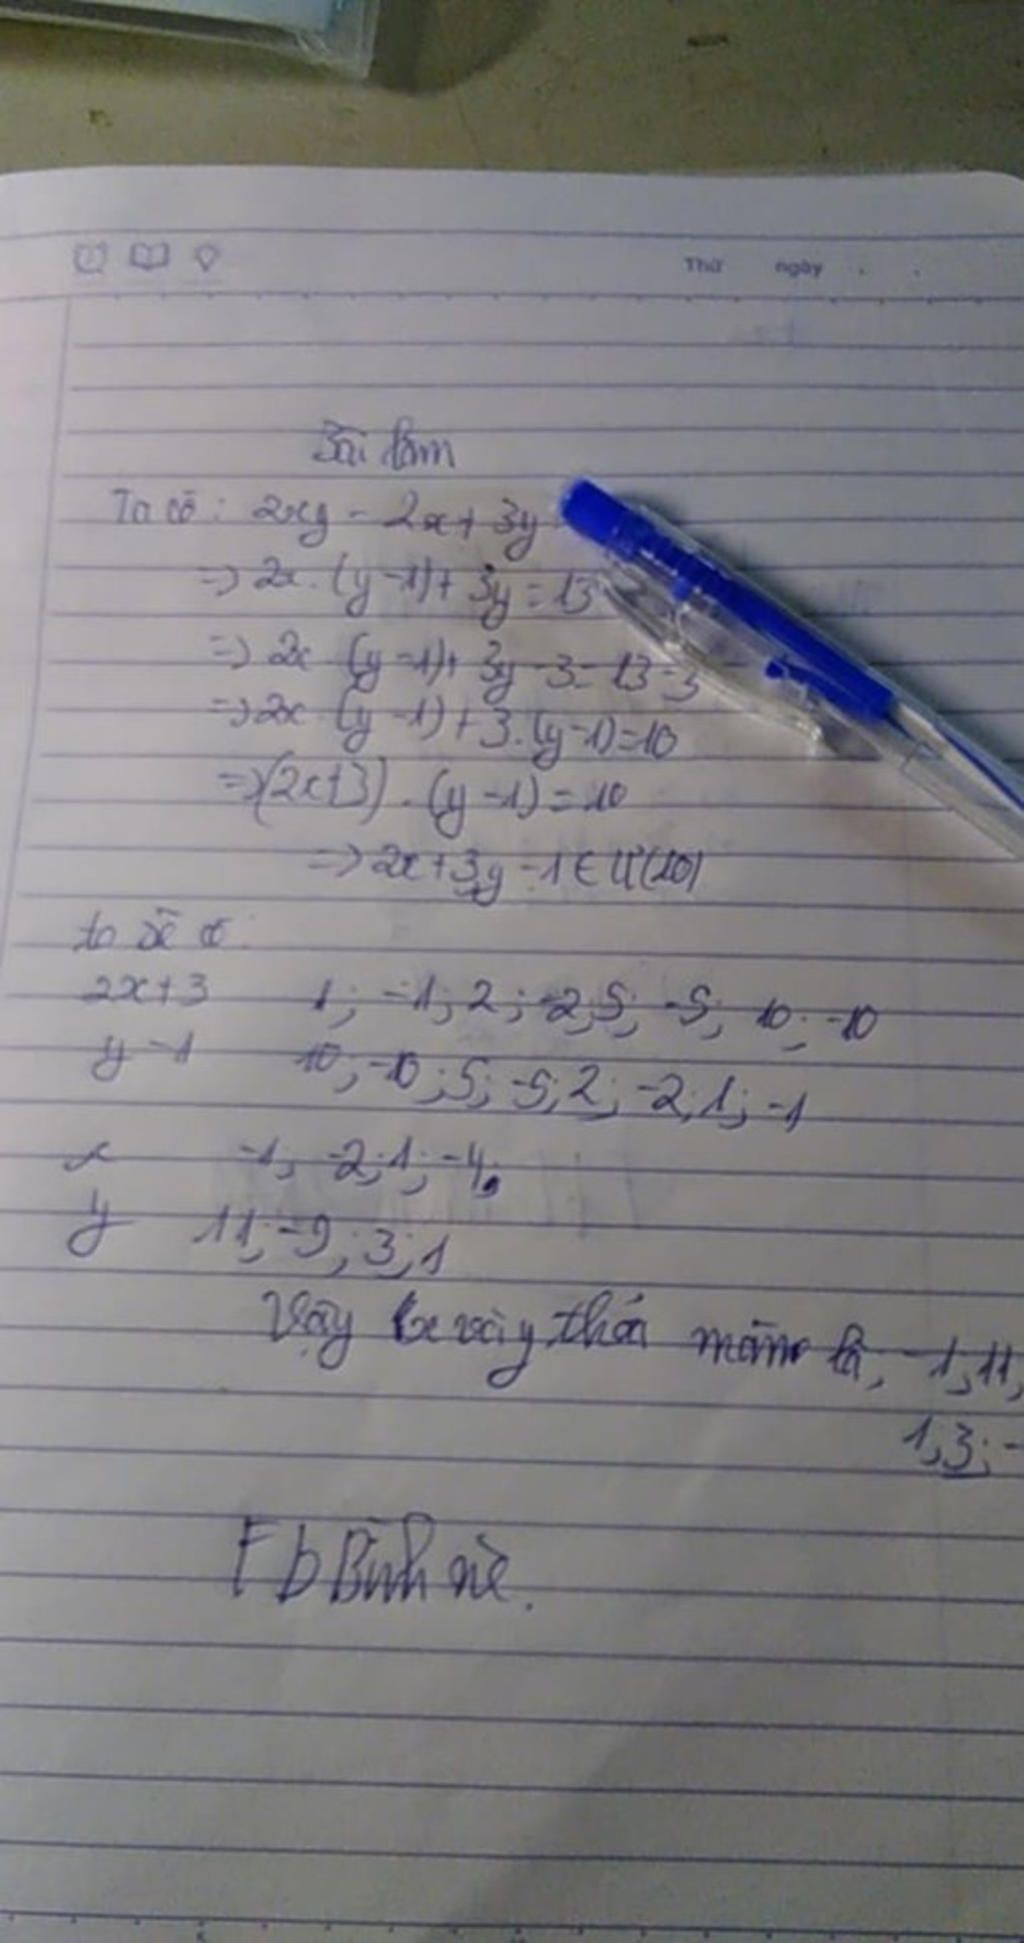 Thứ ngày . .
Bài làm
Ta có : 2xy - 2x + 3y
=> 2x . (y - 1) + 3y = 13
=> 2x (y - 1) + 3y - 3 = 13 - 3
=> 2x . (y - 1) + 3 . (y - 1) = 10
=> (2x + 3) . (y - 1) = 10
=> 2x + 3, y - 1 ∈ Ư(10)
2x + 3 1; -1; 2; -2; 5; -5; 10; -10
y - 1 10; -10; 5; -5; 2; -2; 1; -1
x -1; -2; 1; -4;
y 11; -9; 3; 1
Vậy x và y thỏa mãn là, -1, 11,
1, 3; -
Fb Bình nè.